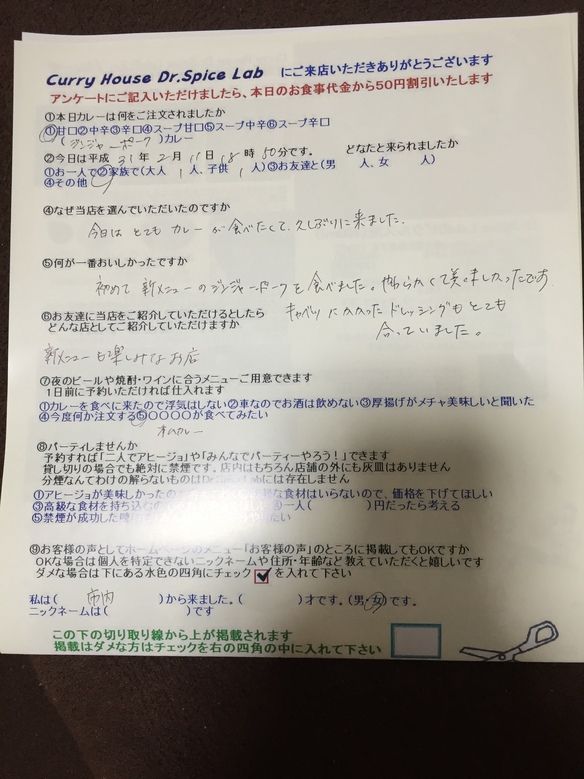 Curry House Dr.Spice Lab にご来店いただきありがとうございます
アンケートにご記入いただけましたら、本日のお食事代金から50円割引いたします
①本日カレーは何をご注文されましたか
①甘口②中辛③辛口④スープ甘口⑤スープ中辛⑥スープ辛口
(ジンジャーポーク)カレー
②今日は平成 31年 2月 11日 18時 50分です。 どなたと来られましたか
①お一人で②家族で(大人 1人、子供 1人)③お友達と(男 人、女 人)
④その他
④なぜ当店を選んでいただいたのですか
今日は とても カレー が 食べたくて、久しぶりに来ました。
⑤何が一番おいしかったですか
初めて 新メニューのジンジャーポークを食べました。やわらかくて美味しかったです
キャベツにかかったドレッシングもとても
合っていました。
⑥お友達に当店をご紹介していただけるとしたら
どんな店としてご紹介していただけますか
新メニューも楽しみなお店
⑦夜のビールや焼酎・ワインに合うメニューご用意できます
1日前に予約いただければ仕入れます
①カレーを食べに来たので浮気はしない②車なのでお酒は飲めない③厚揚げがメチャ美味しいと聞いた
④今度何か注文する⑤○○○○が食べてみたい
オムカレー
⑧パーティしませんか
予約すれば「二人でアヒージョ」や「みんなでパーティーやろう!」できます
貸し切りの場合でも絶対に禁煙です。店内はもちろん店舗の外にも灰皿はありません
分煙なんてわけの解らないものはDr.Spice Labには存在しません
①アヒージョが美味しかった な食材はいらないので、価格を下げてほしい
③高級な食材を持ち込む ④一人( )円だったら考える
⑤禁煙が成功した たい
⑨お客様の声としてホームページのメニュー「お客様の声」のところに掲載してもOKですか
OKな場合は個人を特定できないニックネームや住所・年齢など教えていただくと嬉しいです
ダメな場合は下にある水色の四角にチェック を入れて下さい
私は( 市内 )から来ました。( )才です。(男・女)です。
ニックネームは( )です
この下の切り取り線から上が掲載されます
掲載はダメな方はチェックを右の四角の中に入れて下さい